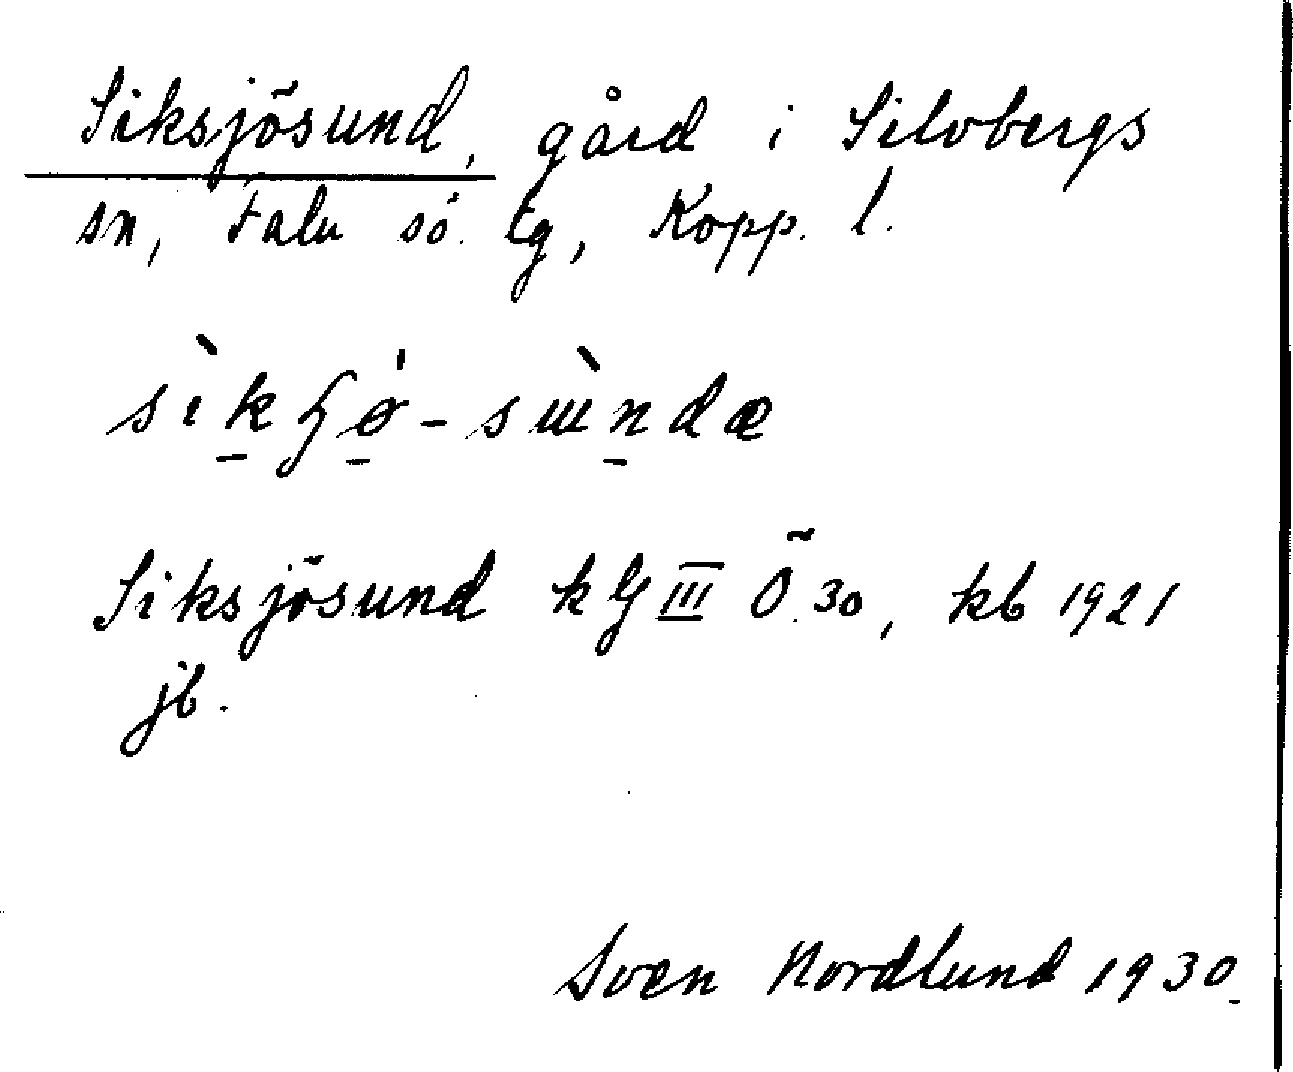 Siksjösund, gård i Silvbergs
sn, Falu sö. tg, Kopp. l.
Siksjösund kgIII Ö. 30, kb 1921
jb.
Sven Nordlund 1930.